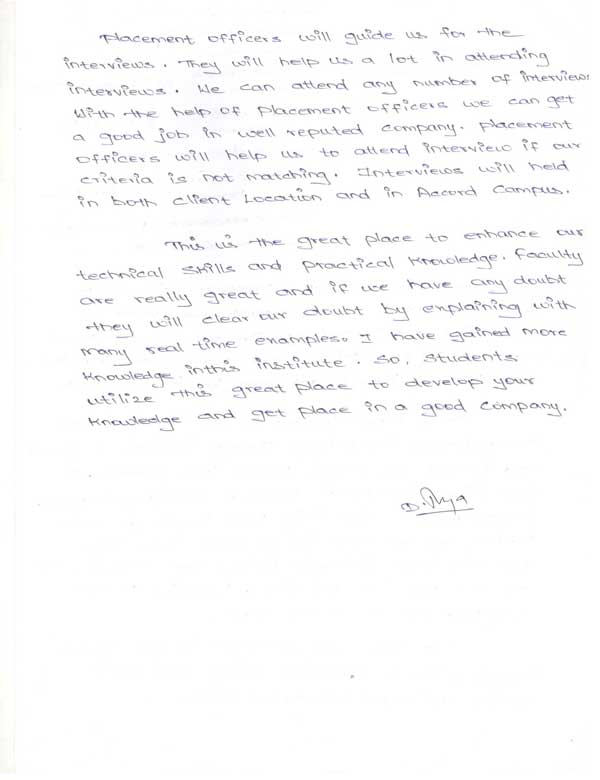 Placement officers will guide us for the
interviews. They will help us a lot in attending
interviews. We can attend any number of interviews
With the help of placement officers we can get
a good job in well reputed company. Placement
officers will help us to attend interview if our
criteria is not matching. Interviews will held
in both client Location and in Accord Campus.
This is the great place to enhance our
technical skills and practical knowledge. Faculty
are really great and if we have any doubt
they will clear our doubt by explaining with
many real time examples. I have gained more
knowledge in this institute. So, Students
utilize this great place to develop your
knowledge and get place in a good company.
D.